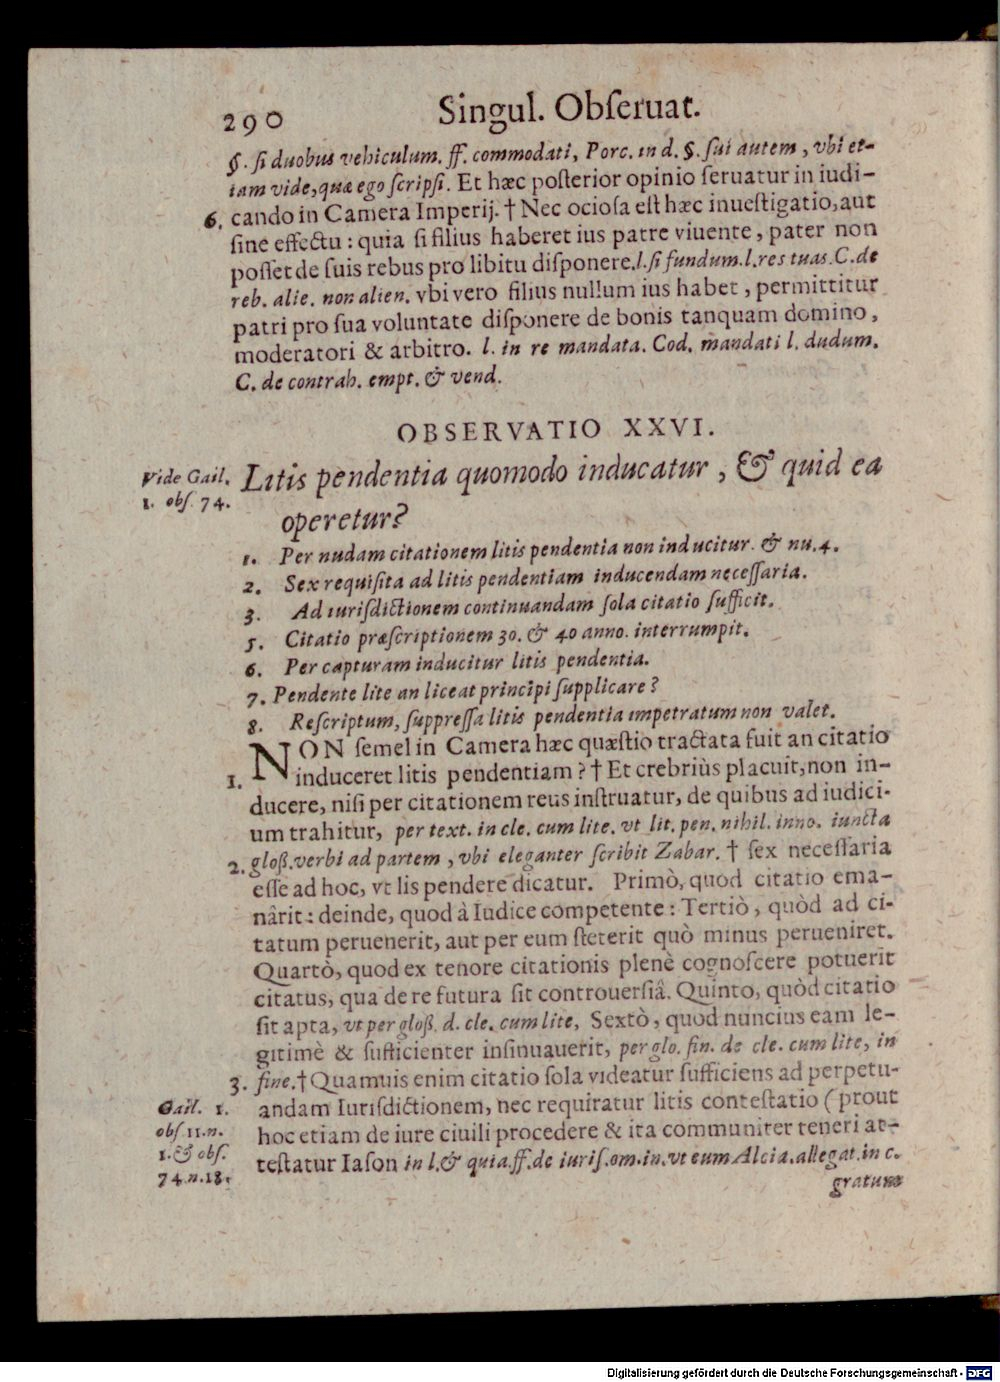 290 Singul. Obſeruat.
§. ſi duobus vehiculum. ff. commodati, Porc. ın d. §. ſui autem, vbi et-
iam vide, quæ ego ſcripſi. Et hæc poſterior opinio ſeruatur in iudi-
6. cando in Camera Imperij. † Nec ocioſa eſt hæc inueſtigatio, aut
ſine effectu: quia ſi filius haberet ius patre viuente, pater non
poſſet de ſuis rebus pro libitu diſponere. l. ſi fundum. l. res tuas. C. de
reb. alie. non alien. vbi vero filius nullum ius habet, permittitur
patri pro ſua voluntate diſponere de bonis tanquam domino,
moderatori & arbitro. l. in re mandata. Cod. mandati l. dudum.
C. de contrah. empt. & vend.
OBSERVATIO XXVI.
Vide Gail.
1. obſ. 74.
Litis pendentia quomodo inducatur, & quid ea
operetur?
1. Per nudam citationem litis pendentia non inducitur. & nu. 4.
2. Sex requiſita ad litis pendentiam inducendam neceſſaria.
3. Ad ıuriſdictionem continuandam ſola citatio ſufficit.
5. Citatio præſcriptionem 30. & 40 anno. interrumpit.
6. Per capturam inducitur litis pendentia.
7. Pendente lite an liceat principi ſupplicare?
8. Reſcriptum, ſuppreſſa litis pendentia ımpetratum non valet.
NON ſemel in Camera hæc quæſtio tractata fuit an citatio
1. induceret litis pendentiam? † Et crebriùs placuit, non in-
ducere, niſi per citationem reus inſtruatur, de quibus ad iudici-
um trahitur, per text. in cle. cum lite. vt lit. pen. nihil. inno. iuncta
2. gloß. verbi ad partem, vbi eleganter ſcribit Zabar. † ſex neceſſaria
eſſe ad hoc, vt lis pendere dicatur. Primò, quod citatio ema-
nârit: deinde, quod à Iudice competente: Tertiò, quòd ad ci-
tatum peruenerit, aut per eum ſteterit quò minus perueniret.
Quartò, quod ex tenore citationis plenè cognoſcere potuerit
citatus, qua de re futura ſit controuerſiâ. Quinto, quòd citatio
ſit apta, vt per gloß. d. cle. cum lite, Sextò, quod nuncius eam le-
gitimè & ſufficienter inſinuauerit, per glo. fin. de cle. cum lite, in
3. fine. † Quamuis enim citatio ſola videatur ſufficiens ad perpetu-
andam Iuriſdictionem, nec requiratur litis conteſtatio (prout
hoc etiam de iure ciuili procedere & ita communiter teneri at-
teſtatur Iaſon in l. & quia. ff. de iuriſ. om. in. vt eum Alcia. allegat. in c.
Gail. 1.
obſ 11. n.
1. & obſ.
74. n. 18.
gratum
Digitalisierung gefördert durch die Deutsche Forschungsgemeinschaft - DFG